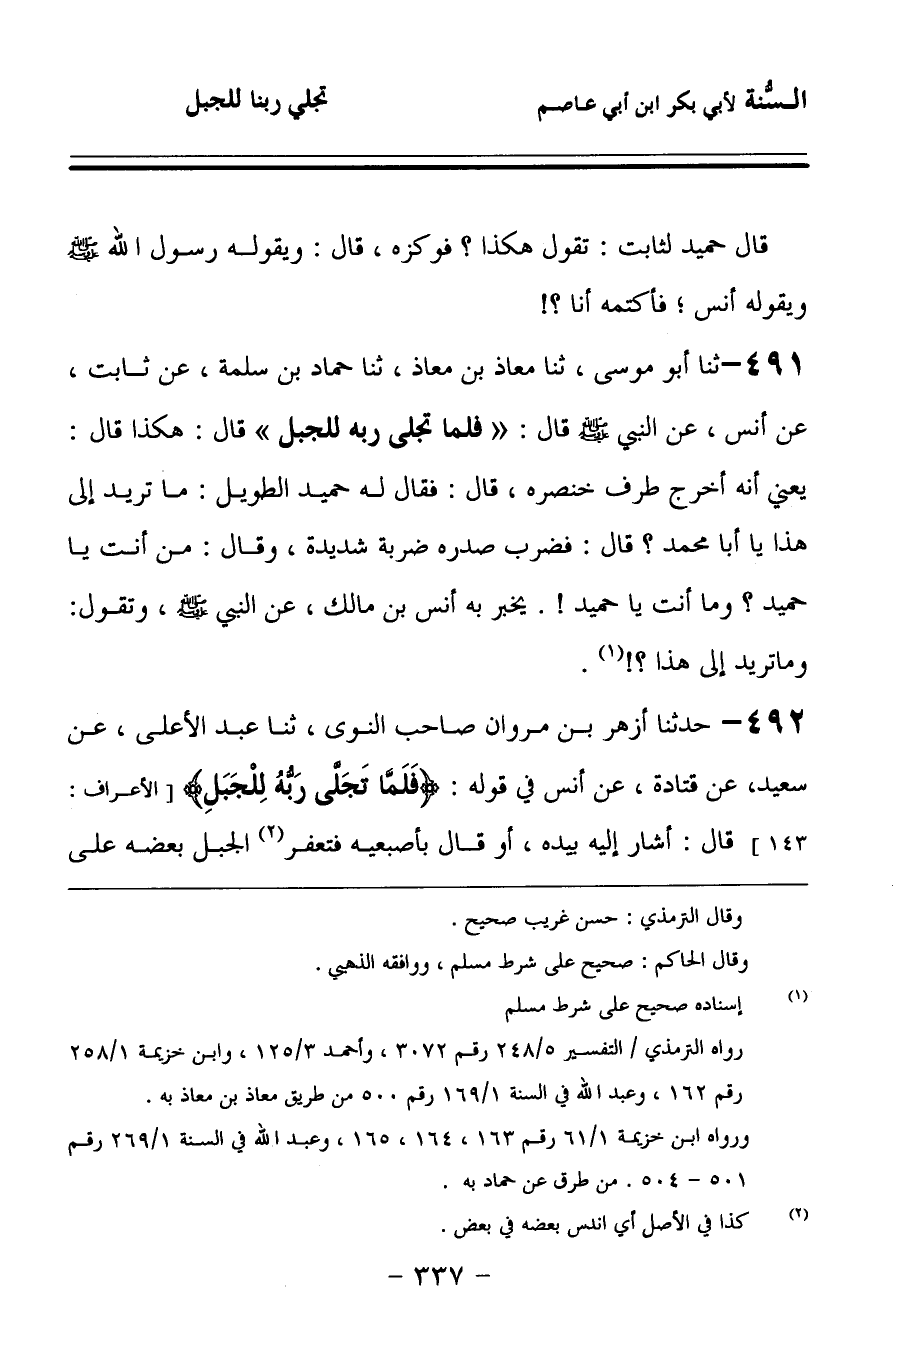 السُّنة لأبي بكر ابن أبي عاصم تجلي ربنا للجبل
قال حميد لثابت : تقول هكذا ؟ فوكزه ، قال : ويقوله رسول الله ﷺ
ويقوله أنس ؛ فأكتمه أنا ؟!
٤٩١- ثنا أبو موسى ، ثنا معاذ بن معاذ ، ثنا حماد بن سلمة ، عن ثابت ،
عن أنس ، عن النبي ﷺ قال : « فلما تجلى ربه للجبل » قال : هكذا قال :
يعني أنه أخرج طرف خنصره ، قال : فقال له حميد الطويل : ما تريد إلى
هذا يا أبا محمد ؟ قال : فضرب صدره ضربة شديدة ، وقال : من أنت يا
حميد ؟ وما أنت يا حميد ! . يخبر به أنس بن مالك ، عن النبي ﷺ ، وتقول:
وماتريد إلى هذا ؟!(١) .
٤٩٢- حدثنا أزهر بن مروان صاحب النوى ، ثنا عبد الأعلى ، عن
سعيد، عن قتادة ، عن أنس في قوله : ﴿فَلَمَّا تَجَلَّى رَبُّهُ لِلْجَبَلِ﴾ [ الأعراف :
١٤٣ ] قال : أشار إليه بيده ، أو قال بأصبعيه فتعفر(٢) الجبل بعضه على
وقال الترمذي : حسن غريب صحيح .
وقال الحاكم : صحيح على شرط مسلم ، ووافقه الذهبي .
(١) إسناده صحيح على شرط مسلم
رواه الترمذي / التفسير ٢٤٨/٥ رقم ٣٠٧٢ ، وأحمد ١٢٥/٣ ، وابن خزيمة ٢٥٨/١
رقم ١٦٢ ، وعبد الله في السنة ١٦٩/١ رقم ٥٠٠ من طريق معاذ بن معاذ به .
ورواه ابن خزيمة ٦١/١ رقم ١٦٣ ، ١٦٤ ، ١٦٥ ، وعبد الله في السنة ٢٦٩/١ رقم
٥٠١ – ٥٠٤ . من طرق عن حماد به .
(٢) كذا في الأصل أي اندس بعضه في بعض .
- ٣٣٧ -